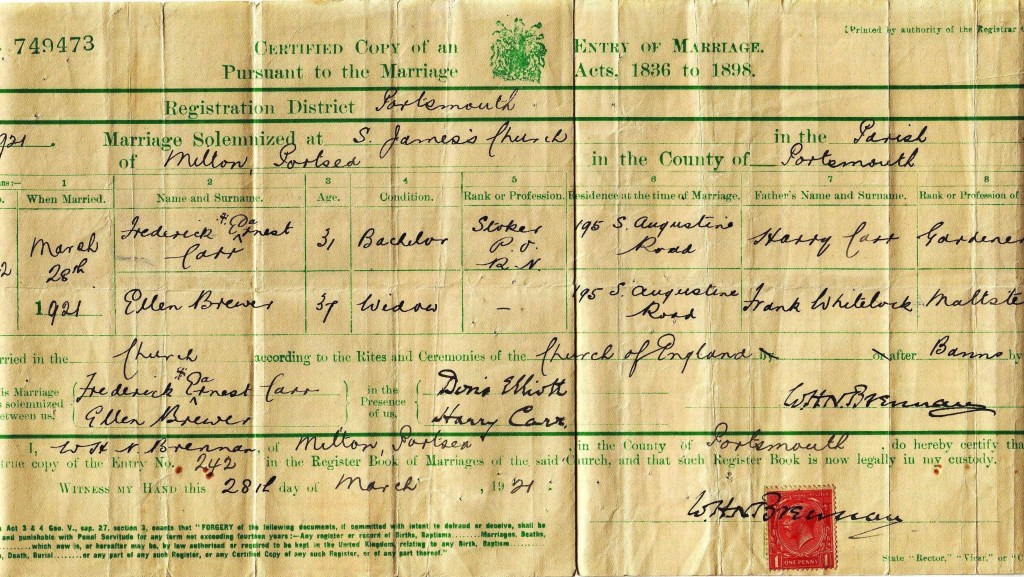 749473
CERTIFIED COPY of an ENTRY OF MARRIAGE.
[Printed by authority of the Registrar
Pursuant to the Marriage Acts. 1836 to 1898.
Registration District Portsmouth
921. Marriage Solemnized at S. James's Church in the Parish
of Milton, Portsea in the County of Portsmouth
1 2 3 4 5 6 7 8
When Married. Name and Surname. Age. Condition. Rank or Profession. Residence at the time of Marriage. Father's Name and Surname. Rank or Profession of
March 28th 1921
Frederick Ernest Carr 31 Bachelor Stoker P.O. R.N. 195 S. Augustine Road Harry Carr Gardener
Ellen Brewer 37 Widow — 195 S. Augustine Road Frank Whitelock Maltste
rried in the Church according to the Rites and Ceremonies of the Church of England by or after Banns by
is Marriage solemnized between us, Frederick Ernest Carr Ellen Brewer in the Presence of us, Doris Elliott Harry Carr W.H.N. Brennan
I, W H N Brennan, of Milton, Portsea in the County of Portsmouth, do hereby certify tha
true copy of the Entry No. 242 in the Register Book of Marriages of the said Church, and that such Register Book is now legally in my custody.
WITNESS MY HAND this 28th day of March, 1921:
W.H.N. Brennan
ONE PENNY
Act 3 & 4 Geo. V., cap. 27, section 3, enacts that "FORGERY of the following documents, if committed with intent to defraud or deceive, shall be
and punishable with Penal Servitude for any term not exceeding fourteen years:—Any register or record of Births, Baptisms ...... Marriages, Deaths,
...... which now is, or hereafter may be, by law authorised or required to be kept in the United Kingdom, relating to any Birth, Baptism ......
, Death, Burial ...... or any part of any such Register, or any Certified Copy of any such Register, or of any part thereof."
State "Rector," "Vicar," or "C